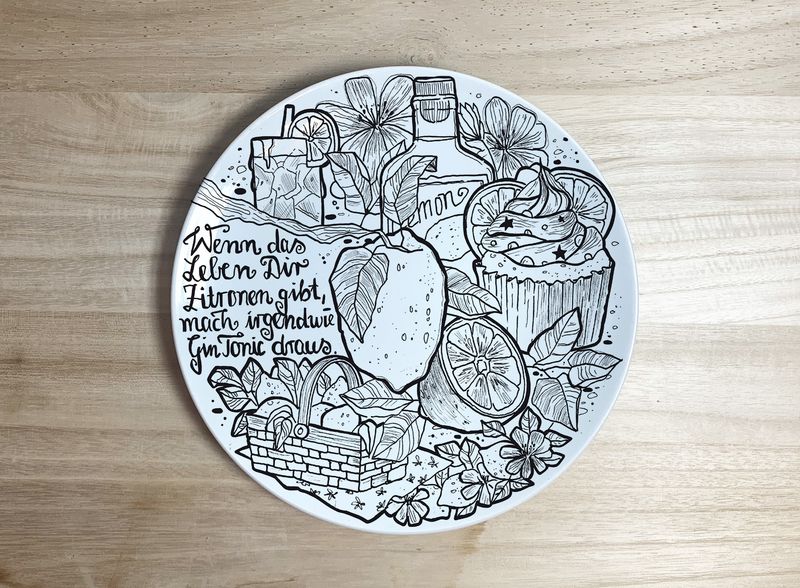 mon
Wenn das
Leben Dir
Zitronen gibt,
mach irgendwie
Gin Tonic draus.